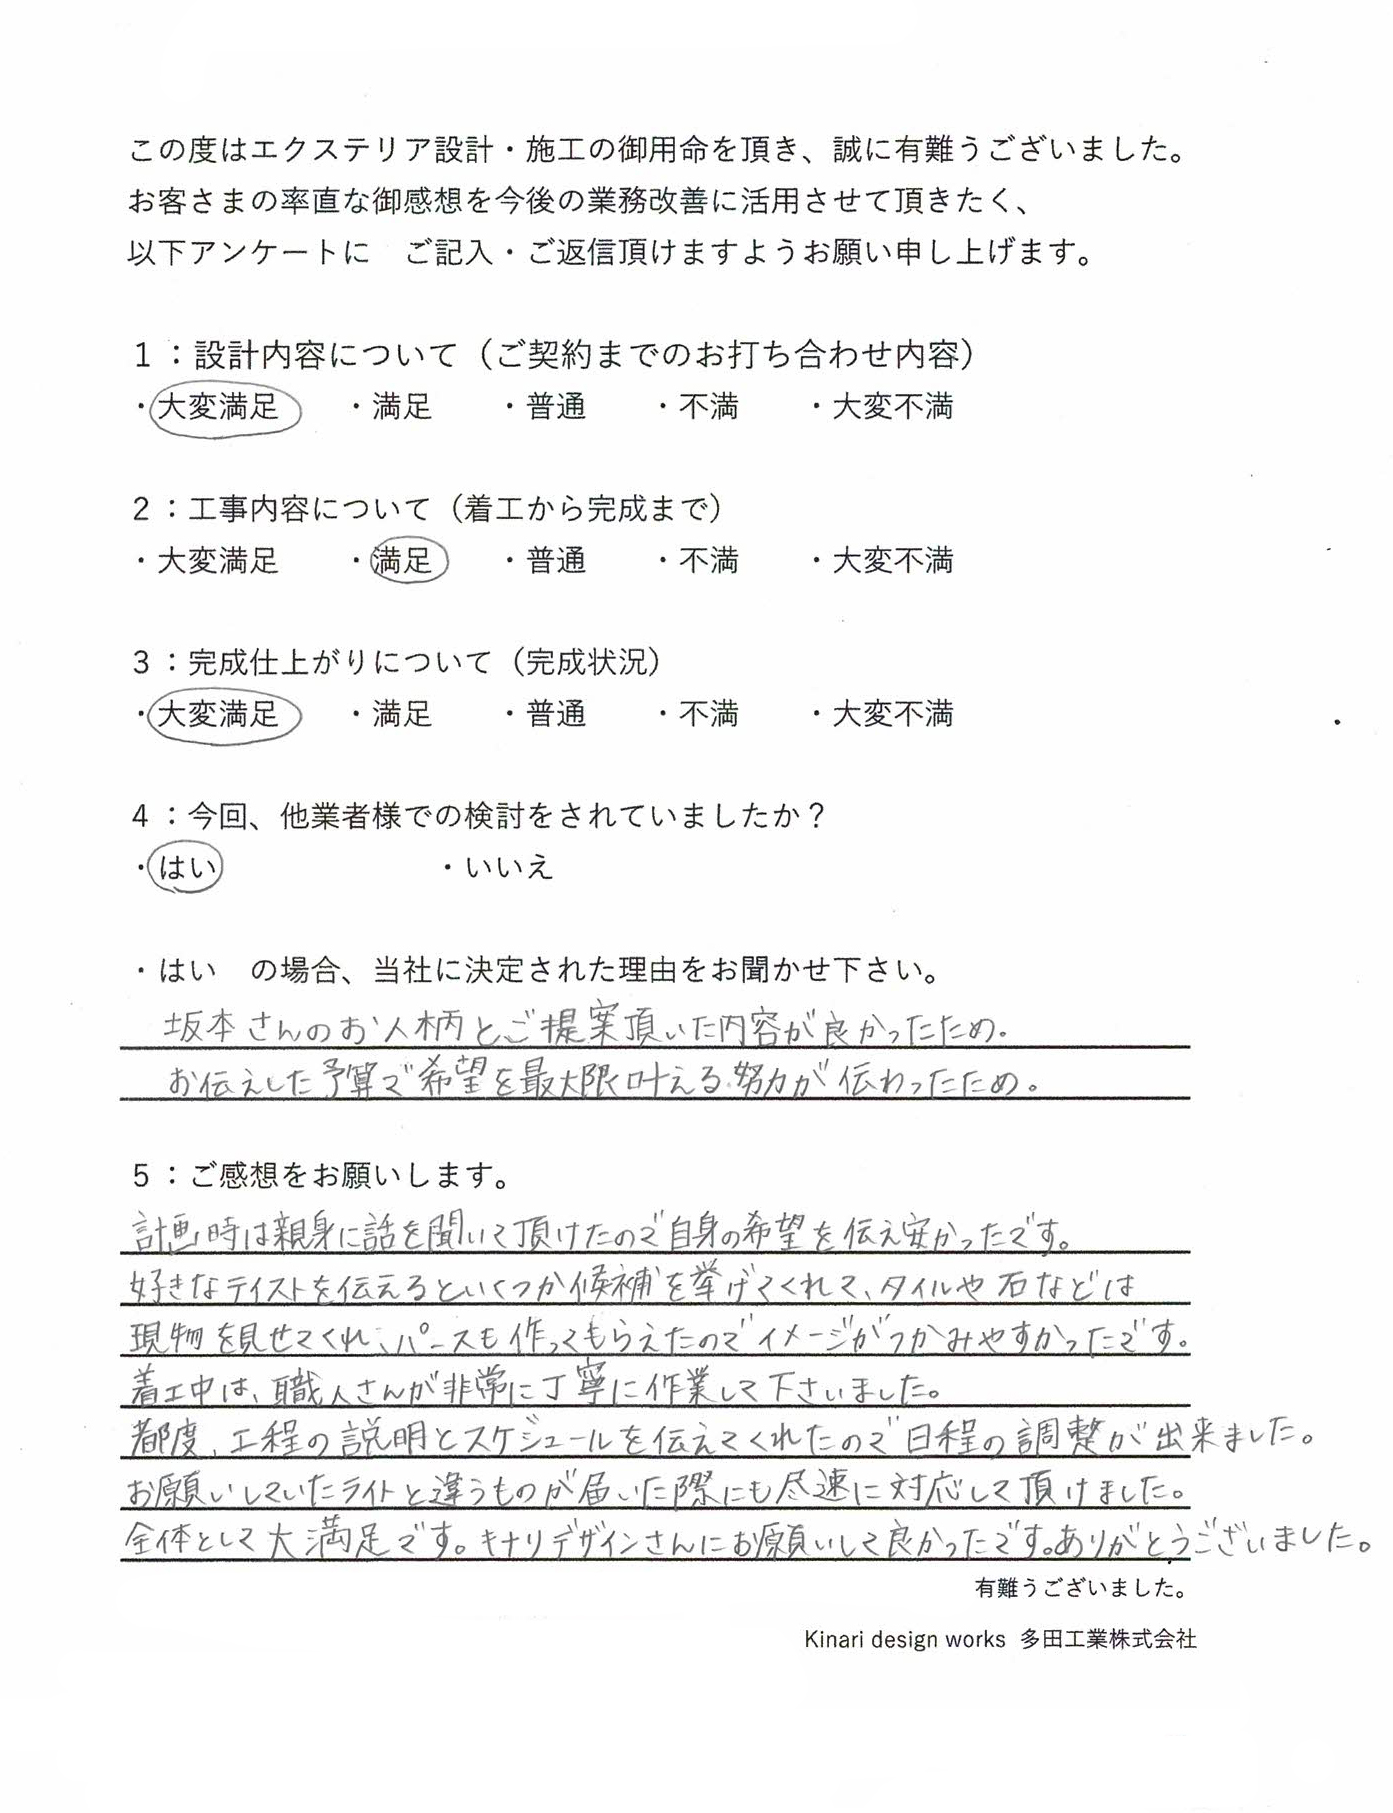 この度はエクステリア設計・施工の御用命を頂き、誠に有難うございました。
お客さまの率直な御感想を今後の業務改善に活用させて頂きたく、
以下アンケートに　ご記入・ご返信頂けますようお願い申し上げます。
1：設計内容について（ご契約までのお打ち合わせ内容）
・大変満足　・満足　・普通　・不満　・大変不満
2：工事内容について（着工から完成まで）
・大変満足　・満足　・普通　・不満　・大変不満
3：完成仕上がりについて（完成状況）
・大変満足　・満足　・普通　・不満　・大変不満
4：今回、他業者様での検討をされていましたか？
・はい　・いいえ
・はい　の場合、当社に決定された理由をお聞かせ下さい。
坂本さんのお人柄とご提案頂いた内容が良かったため。
お伝えした予算で希望を最大限叶える努力が伝わったため。
5：ご感想をお願いします。
計画時は親身に話を聞いて頂けたので自身の希望を伝え安かったです。
好きなテイストを伝えるといくつか候補を挙げてくれて、タイルや石などは
現物を見せてくれ、パースも作ってもらえたのでイメージがつかみやすかったです。
着工中は、職人さんが非常に丁寧に作業して下さいました。
都度、工程の説明とスケジュールを伝えてくれたので日程の調整が出来ました。
お願いしていたライトと違うものが届いた際にも尽速に対応して頂けました。
全体として大満足です。キナリデザインさんにお願いして良かったです。ありがとうございました。
有難うございました。
Kinari design works 多田工業株式会社